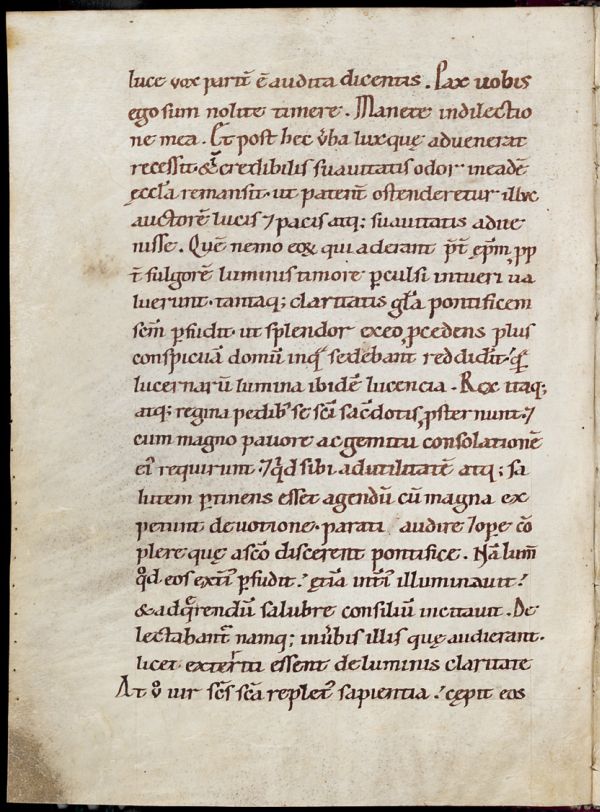 luce vox parit̄ ē audita dicentis. Pax uobis
ego sum nolite timere. Manete in dilectio
ne mea. Et post hec ūba lux quę aduenerat
recessit. & īcredibilis suauitatis odor in eadē
ęccła remansit. ut patent̄ ostenderetur illuc
auctorē lucis ⁊ pacis atq; suauitatis adue
nisse. Quē nemo eoꝝ qui aderant p̄t ep̄m, ꝓp
t̄ fulgorē luminis timore ꝑculsi intueri ua
luerunt. tantaq; claritatis gła pontificem
sc̄m ꝑfudit. ut splendor ex eo ꝓcedens plus
conspicuā domū in qͣ sedebant reddidit. qͣ̄
lucernarū lumina ibidē lucencia. Rex itaq;
atq; regina pedibꝰ se sc̄i sac̄dotis ꝓsternunt. ⁊
cum magno pauore ac gemitu consolationē
eiꝰ requirunt. ⁊ qd̄ sibi ad utilitatē atq; sa
lutem ꝑtinens esset agendū cū magna ex
petunt deuotione. parati audire ⁊ ope cō
plere quę a sc̄o discerent pontifice. Nā lum̄
qd̄ eos ext̄i ꝰ ꝑfudit. etiā int̄iꝰ illuminauit.
& ad q̄rendū salubre consiliū incitauit. De
lectabant̄ namq; in ūbis illis quę audierant.
licet exterriti essent de luminis claritate
At ů uir sc̄s sc̄a repletꝰ sapientia. cępit eos